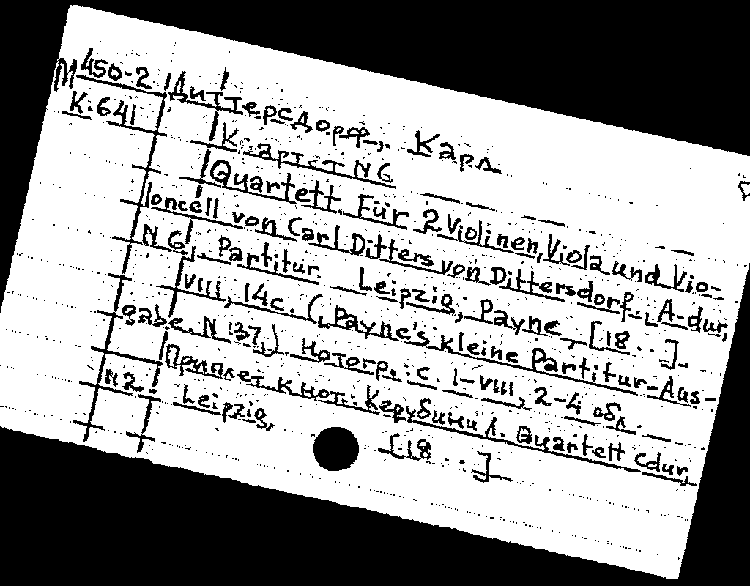 М 450-2 Диттерсдорф, Карл
К-641
Квартет N 6
Quartett Für 2 Violinen, Viola und Vio-
loncell von Carl Ditters von Dittersdorf, A-dur,
N 6, Partitur. Leipzig, Payne, [18 . . ].
VIII, 14 с. (Payne's kleine Partitur-Aus-
gabe. N 137.) Нотогр.: с. I-VIII, 2-4 обл.
Приплет. к нот.: Керубини Л. Quartett Cdur,
N 2. Leipzig, [18 . . ]